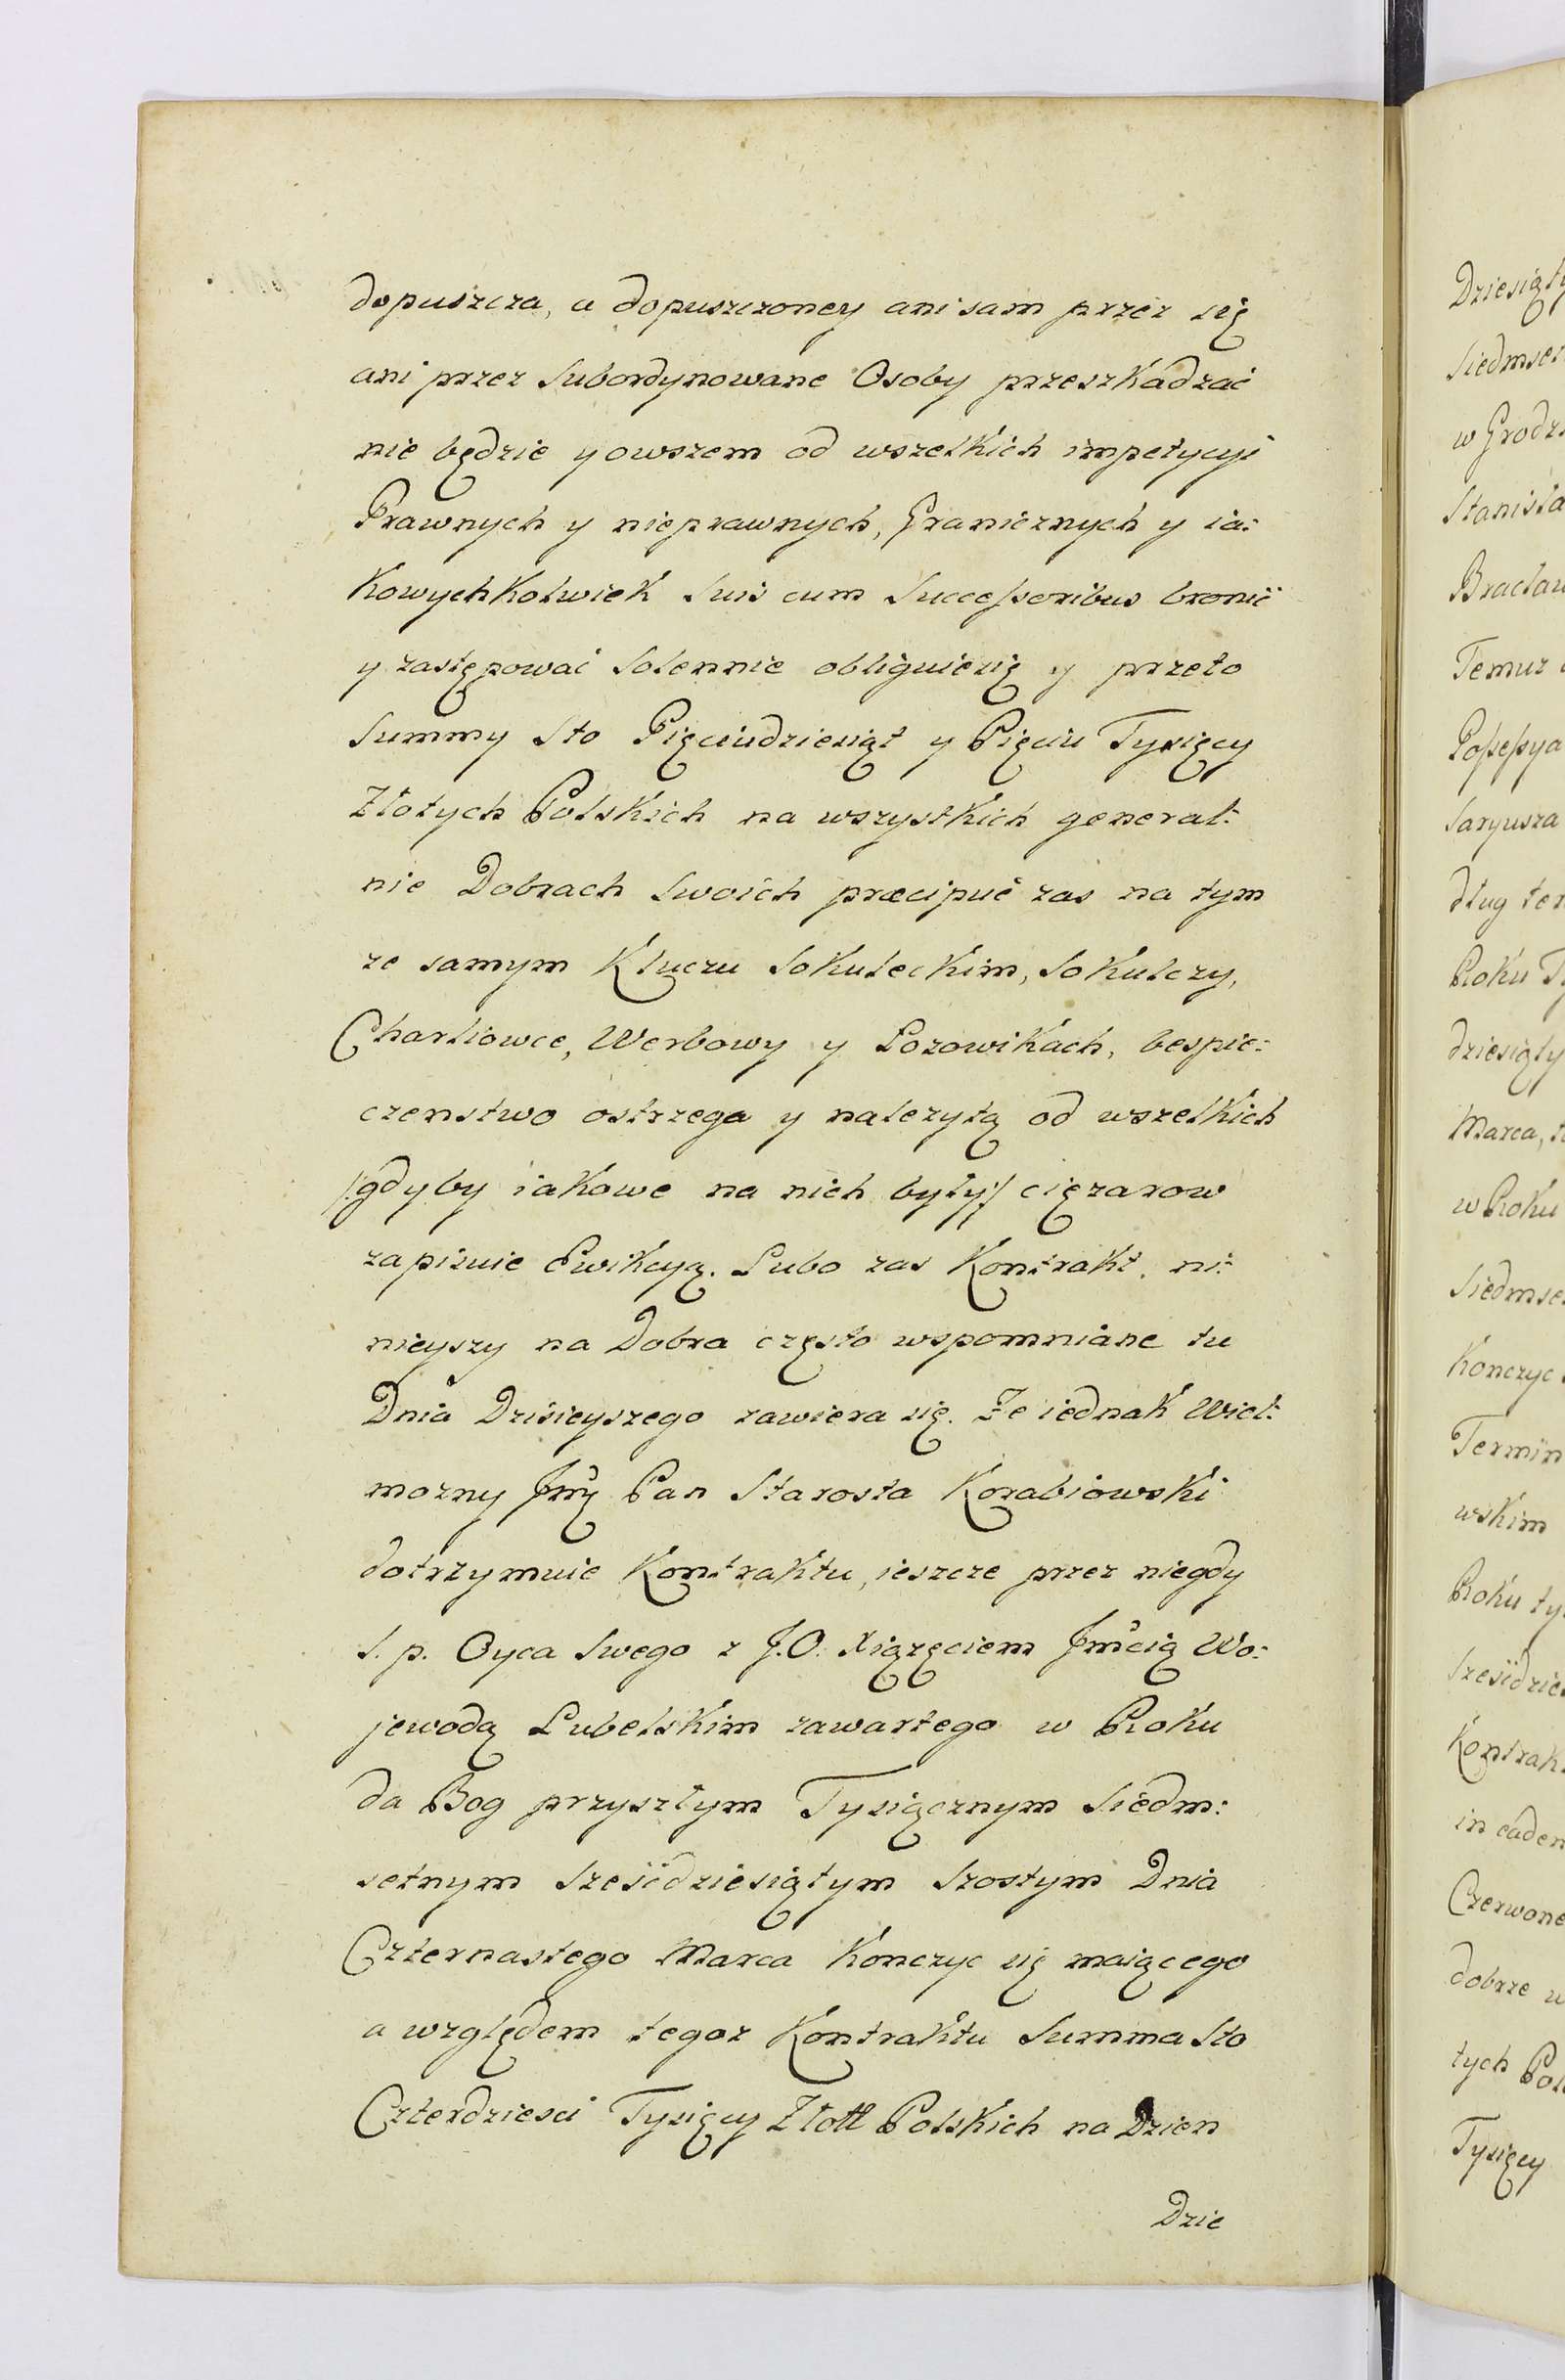 dopuszcza, a dopuszczoney ani sam przez się
ani przez Subordynowane Osoby przeszkadzać
nie będzie y owszem od wszelkich impetycyi
Prawnych y nieprawnych, Granicznych y ia:
kowychkolwiek Suis cum Successoribus bronić
y zastępować Solennie obliguiesię y przeto
Summy Sto Pięciudziesiąt y Pięciu Tysięcy
Złotych Polskich na wszystkich general:
nie Dobrach Swoich præcipuè zas na tym
ze samym Kluczu Sokuleckim, Sokulczy,
Charliowce, Werbowy y Łozowikach, bespie:
czenstwo ostrzega y nalezytą od wszelkich
/:gdyby iakowe na nich były:/ cięzarow
zapisuie Ewikcyą. Lubo zas Kontrakt ni:
nieyszy na Dobra często wspomniane tu
Dnia Dzisieyszego zawiera się. Ze iednak Wiel:
mozny Jmć Pan Starosta Korabiowski
dotrzymuie Kontraktu, ieszcze przez niegdy
S. p. Oyca Swego z J.O. Xiązęciem Jmcią Wo:
jewodą Lubelskim zawartego w Roku
da Bog przyszłym Tysiącznym Siedm:
setnym Sześćdziesiątym Szostym Dnia
Czternastego Marca Konczyc się maiącego
a względem tegoz Kontraktu Summa Sto
Czterdziesci Tysięcy Złott Polskich na Dzien
Dzie
Dziesiąty
Siedmset
w Grodz
Stanisła
Bracław
Temuz
Possessya
Saryusza
dług ter
Roku Ty
dziesiąty
Marca,
w Roku
Siedmse
Konczyc
Termin
wskim
Roku ty
Sześćdzie
Kontrak
in eadem
Czerwone
dobrze w
tych Pol
Tysięcy